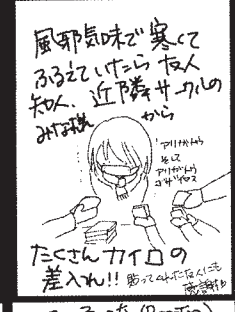 風邪気味で寒くて
ふるえていたら友人
知人、近隣サークルの
みな様から
アリがとう
そして
アリがとう
ゴザイマス
たくさんカイロの
差入れ!!
貼ってくれた友人にも
感謝